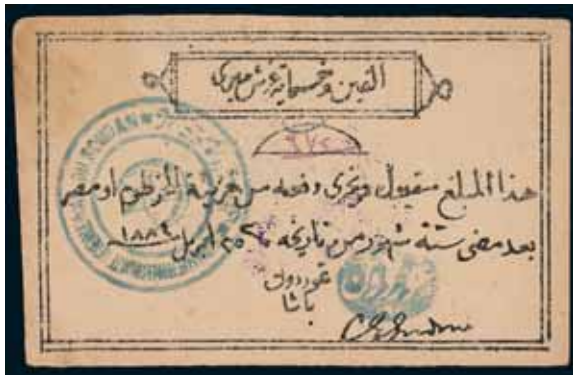 الفين وخمسماية غرش ميرى
هذا المبلغ مقبول ويجرى دفعه من خزينة الخرطوم او مصر
بعد مضى ستة شهور من تاريخه ٢٥ ابريل ١٨٨٤
غوردون
باشا
SOUDAN